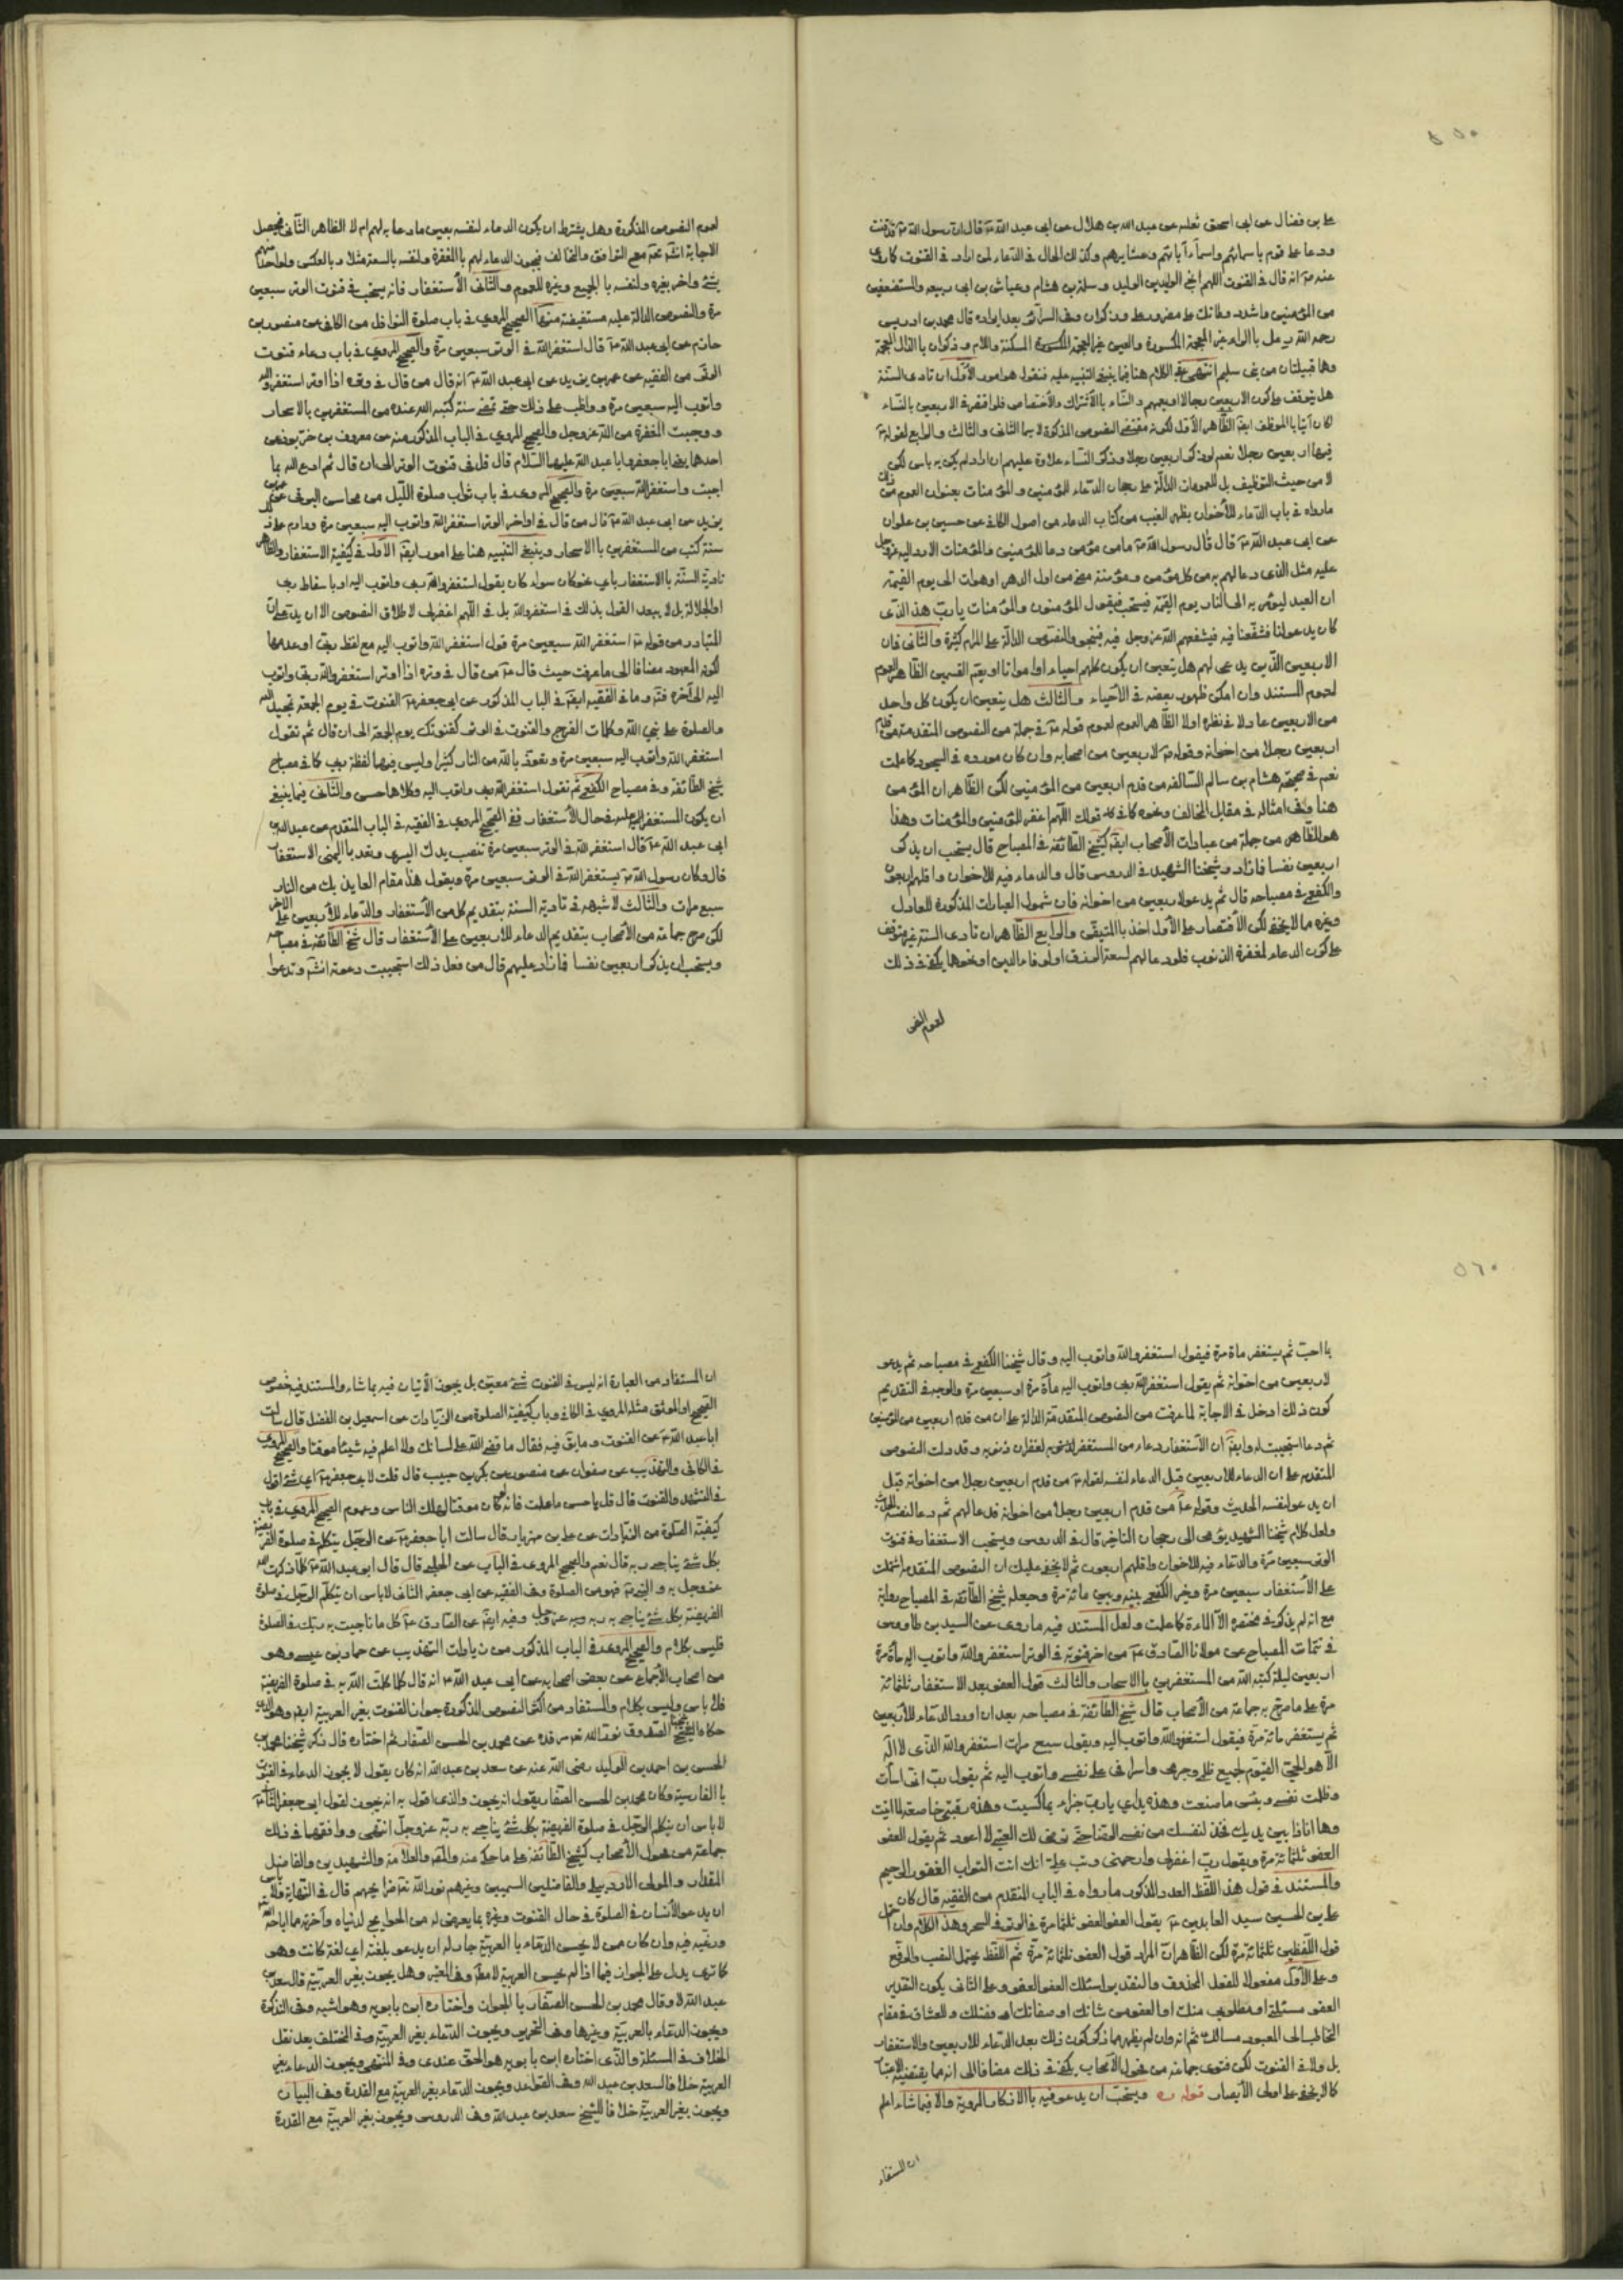 ٥٥٠
على بن فضال عن ابى اسحق ثعلبه عن عبد الله بن هلال عن ابى عبد الله ع قال ان رسول الله ص قد قنت
ودعا على قوم باسمائهم واسماء آبائهم وعشايرهم وكذلك الحال فى الدعاء لمن اراد فى القنوت كما روى
عنه ص انه قال فى القنوت اللهم انج الوليد بن الوليد وسلمة بن هشام وعياش بن ابى ربيعه والمستضعفين
من المؤمنين واشدد وطأتك على مضر ورعل وذكوان وفى السرائر بعد ايراده قال محمد بن ادريس
رحمه الله رعل بالراء غير المعجمة المكسورة والعين غير المعجمة المسكنة واللام وذكوان بالذال المعجمة
وهما قبيلتان من بنى سليم انتهى الكلام هنا فيما ينبغى التنبيه عليه فنقول هو امور الأول ان تادى السنة
هل يتوقف على كون الاربعين رجالا او يعمهم والنساء بالأشتراك والأختصاص فلو اقتصر فى الاربعين بالنساء
كان آتيا بالموظف ايضا الظاهر الأول لكونه مقتضى النصوص المذكورة لا سيما الثانى والثالث والرابع لقوله ع
فيها اربعين رجلا نعم لو ذكر اربعين رجلا وذكر النساء علاوة عليهم ان اراد لم يكن به باس لكن
لا من حيث التوظيف بل للعمومات الدالة على رجحان الدعاء للمؤمنين والمؤمنات بعنوان العموم من ذلك
ما رواه فى باب الدعاء للأخوان بظهر الغيب من كتاب الدعاء من اصول الكافى عن حسين بن علوان
عن ابى عبد الله ع قال قال رسول الله ص ما من مؤمن دعا للمؤمنين والمؤمنات الا رد الله عز وجل
عليه مثل الذى دعا لهم به من كل مؤمن ومؤمنة مضى من اول الدهر او هو آت الى يوم القيمة
ان العبد ليؤمر به الى النار يوم القيمة فيسحب فيقول المؤمنون والمؤمنات يا رب هذا الذى
كان يدعو لنا فشفعنا فيه فيشفعهم الله عز وجل فيه فينجو والنصوص الدالة على المرام كثيرة والثانى فان
الاربعين الذين يدعى لهم هل يتعين ان يكون كلهم احياء او امواتا او يعم القسمين الظاهر العموم
لعموم المستند وان امكن ظهور بعضه فى الأحياء والثالث هل يتعين ان يكون كل واحد
من الاربعين عادلا فى نظره او لا الظاهر العموم لعموم قوله ع فى جملة من النصوص المتقدمة من قدم
اربعين رجلا من اخوانه وقوله ع لاربعين من اصحابه وان كان مورده فى السجود كما علمت
نعم فى صحيحة هشام بن سالم السالفه من قدم اربعين من المؤمنين لكن الظاهر ان المؤمن
هنا وفى امثاله فى مقابل المخالف ونحوه كما فى قولك اللهم اغفر للمؤمنين والمؤمنات وهذا
هو الظاهر من جملة من عبارات الأصحاب ايضا كشيخ الطائفة فى المصباح قال يستحب ان يذكر
اربعين نفسا فما زاد وشيخنا الشهيد فى الدروس قال والدعاء فيه للاخوان واقلهم اربعون
والكفعمى فى مصباحه قال ثم يدعو لاربعين من اخوانه فان شمول العبارات المذكورة للعادل
وغيره مما لا يخفى لكن الأقتصار على الأول اخذ بالمتيقن والرابع الظاهر ان تادى السنة غير متوقف
على كون الدعاء لمغفرة الذنوب فلو دعا لهم لسعة الرزق او لوفاء الدين او نحوها يكفى فى ذلك
لعموم النص
لعموم النصوص المذكورة وهل يشترط ان يكون الدعاء لنفسه بعين ما دعا به لهم ام لا الظاهر الثانى فيحصل
الاجابة انشاء الله تعالى مع التوافق والتخالف فيجوز الدعاء لهم بالمغفرة ولنفسه بالسعة مثلا وبالعكس ولواحد منهم
بشئ واخر بغيره ولنفسه بالجميع وغيره للعموم والثانى الأستغفار فانه يستحب فى قنوت الوتر سبعين
مرة والنصوص الدالة عليه مستفيضة منها الصحيح المروى فى باب صلوة النوافل من الكافى عن منصور بن
حازم عن ابى عبد الله ع قال استغفر الله فى الوتر سبعين مرة والصحيح المروى فى باب دعاء قنوت
الوتر من الفقيه عن عمر بن يزيد عن ابى عبد الله ع انه قال من قال فى وتره اذا اوتر استغفر الله
واتوب اليه سبعين مرة وواظب على ذلك حتى تمضى سنة كتبه الله عنده من المستغفرين بالاسحار
ووجبت المغفرة من الله عز وجل والصحيح المروى فى الباب المذكور منه عن معروف بن خربوذ عن
احدهما يعنى ابا جعفر وابا عبد الله عليهما السلام قال قل فى قنوت الوتر الى ان قال ثم ادع الله بما
احببت واستغفر الله سبعين مرة والصحيح المروى فى باب ثواب صلوة الليل من محاسن البرقى عن عمر بن
يزيد عن ابى عبد الله ع قال من قال فى اواخر الوتر استغفر الله واتوب اليه سبعين مرة ودام على ذلك
سنة كتب من المستغفرين بالاسحار وينبغى التنبيه هنا على امور ايضا الأول فى كيفية الاستغفار والظاهر
تادية السنة بالاستغفار باى نحو كان سواء كان يقول استغفر الله ربى واتوب اليه او باسقاط ربى
او الجلالة بل لا يبعد القول بذلك فى استغفر الله بل فى اللهم اغفر لى لاطلاق النصوص الا ان يدعى ان
المتبادر من قوله ع استغفر الله سبعين مرة قول استغفر الله واتوب اليه مع لفظ ربى او عدمها
لكونه المعهود مضافا الى ما عرفت حيث قال ع من قال فى وتره اذا اوتر استغفر الله ربى واتوب
اليه الى آخره فتر وما فى الفقيه ايضا فى الباب المذكور عن ابى جعفر ع القنوت فى يوم الجمعة تمجيد الله
والصلوة على نبى الله وكلمات الفرج والقنوت فى الوتر كقنوتك يوم الجمعة الى ان قال ثم تقول
استغفر الله واتوب اليه سبعين مرة وتعوذ بالله من النار كثيرا وليس فيها لفظة ربى كما فى مصباح
شيخ الطائفة وفى مصباح الكفعمى ثم تقول استغفر الله ربى واتوب اليه وكلاهما حسن والثانى فيما ينبغى
ان يكون المستغفر عليه فى حال الأستغفار ففى الصحيح المروى فى الفقيه فى الباب المتقدم عن عبد الله بن
ابى عبد الله ع قال استغفر الله فى الوتر سبعين مرة تنصب يدك اليسرى وتعد باليمنى الاستغفار
قال وكان رسول الله ص يستغفر الله فى الوتر سبعين مرة ويقول هذا مقام العايذ بك من النار
سبع مرات والثالث لا شبهه فى تادية السنة بتقديم كل من الأستغفار والدعاء للأربعين على الاخر
لكن صرح جماعة من الأصحاب بتقديم الدعاء للاربعين على الأستغفار قال شيخ الطائفة فى مصباحه
ويستحب ان يذكر اربعين نفسا فما زاد عليهم قال من فعل ذلك استجيبت دعوته انشاء الله وتدعوا
٥٦٠
بما احب ثم يستغفر مأة مرة فيقول استغفر الله واتوب اليه وقال شيخنا الكفعمى فى مصباحه ثم يدعو
لاربعين من اخوانه ثم يقول استغفر الله ربى واتوب اليه مأة مرة او سبعين مرة والوجه فى التقديم
كون ذلك ادخل فى الاجابة لما عرفت من النصوص المتقدمة الدالة على ان من قدم اربعين من المؤمنين
ثم دعا استجيب له وايضا ان الأستغفار دعاء من المستغفر لغفران ذنوبه وقد دلت النصوص
المتقدمه على ان الدعاء للاربعين قبل الدعاء لنفسه لقوله ع من قدم اربعين رجلا من اخوانه قبل
ان يدعو لنفسه الحديث وقوله ع من قدم اربعين رجلا من اخوانه فدعا لهم ثم دعا لنفسه الحديث
ولعل كلام شيخنا الشهيد يومى الى رجحان التاخير قال فى الدروس ويستحب الاستغفار فى قنوت
الوتر سبعين مرة والدعاء فيه للاخوان واقلهم اربعون ثم لا يخفى عليك ان النصوص المتقدمه اشتملت
على الأستغفار سبعين مرة وخير الكفعمى بينه وبين مائة مرة وجعله شيخ الطائفة فى المصباح رواية
مع انه لم يذكر فى مختصره الا المأة كما علمت ولعل المستند فيه ما روى عن السيد بن طاووس
فى تتمات المصباح عن مولانا الصادق ع من اخر قنوته فى الوتر استغفر الله واتوب اليه مأة مرة
اربعين ليلة كتبه الله من المستغفرين بالاسحار والثالث قول العفو بعد الاستغفار ثلثمائة
مرة على ما صرح به جماعة من الأصحاب قال شيخ الطائفة فى مصباحه بعد ان اورد الدعاء للأربعين
ثم يستغفر مائة مرة فيقول استغفر الله واتوب اليه ويقول سبع مرات استغفر الله الذى لا اله
الا هو الحى القيوم لجميع ظلمى وجرمى واسرافى على نفسى واتوب اليه ثم يقول رب اسأت
وظلمت نفسى وبئس ما صنعت وهذه يداى يا رب جزاء بما كسبت وهذه رقبتى خاضعة لما اتيت
وها انا ذا بين يديك فخذ لنفسك من نفسى الرضا حتى ترضى لك العتبى لا اعود ثم يقول العفو
العفو ثلثمائة مرة ويقول رب اغفر لى وارحمنى وتب على انك انت التواب الغفور الرحيم
والمستند فى قول هذا اللفظ العدد المذكور ما رواه فى الباب المتقدم من الفقيه قال كان
على بن الحسين سيد العابدين ع يقول العفو العفو ثلثمائة مرة فى الوتر فى السحر وهذا الكلام وان احتمل
قول اللفظين ثلثمائة مرة لكن الظاهر ان المراد قول العفو ثلثمائة مرة ثم اللفظ يحتمل النصب والرفع
وعلى الأول مفعولا للفعل المحذوف والتقدير اسئلك العفو العفو وعلى الثانى يكون التقدير
العفو مسئلتى او مطلوبى منك او العفو من شانك او صفاتك او فضلك وللعشاق فى مقام
التخاطب الى المعبود مسالك ثم انه وان لم يظهر مما ذكر كون ذلك بعد الدعاء للاربعين والاستغفار
بل ولا فى القنوت لكن فتوى جماعة من فحول الأصحاب يكفى فى ذلك مضافا الى انه مما يقتضيه الاعتبار
كما لا يخفى على اولى الأبصار قوله ره ويستحب ان يدعو فيه بالاذكار المروية والا فبما شاء اعلم
ان المستفاد
ان المستفاد من العبارة انه ليس فى القنوت شئ معين بل يجوز الأتيان فيه بما شاء والمستند فيه خصوص
الصحيح او الموثق مثله المروى فى الكافى وباب كيفية الصلوة من الزيادات عن اسمعيل بن الفضل قال سالت
ابا عبد الله ع عن القنوت وما يق فيه فقال ما قضى الله على لسانك ولا اعلم فيه شيئا موقتا والصحيح المروى
فى الكافى والتهذيب عن صفوان عن منصور عن بكر بن حبيب قال قلت لابى جعفر ع اى شئ اقول
فى التشهد والقنوت قال قل باحسن ما علمت فانه لو كان موقتا لهلك الناس وعموم الصحيح المروى فى باب
كيفية الصلوة من الزيادات عن على بن مهزيار قال سالت ابا جعفر ع عن الرجل يتكلم فى صلوة الفريضة
بكل شئ يناجى ربه قال نعم والصحيح المروى فى الباب عن الحلبى قال قال ابو عبد الله ع كلما ذكرت الله
عز وجل به والنبى ص فهو من الصلوة وفى الفقيه عن ابى جعفر الثانى لا باس ان يتكلم الرجل فى صلوة
الفريضة بكل شئ يناجى به ربه عز وجل وفيه ايضا عن الصادق ع كل ما ناجيت به ربك فى الصلوة
فليس بكلام والصحيح المروى فى الباب المذكور من زيادات التهذيب عن حماد بن عيسى وهو
من اصحاب الأجماع عن بعض اصحابه عن ابى عبد الله ع انه قال كلما كلمت الله به فى صلوة الفريضة
فلا باس وليس بكلام والمستفاد من اكثر النصوص المذكورة جواز القنوت بغير العربية ايضا وهو الذى
حكاه شيخنا الصدوق نور الله تعالى مرقده عن محمد بن الحسن الصفار ثم اختاره قال ذكر شيخنا محمد بن
الحسن بن احمد بن الوليد رضى الله عنه عن سعد بن عبد الله انه كان يقول لا يجوز الدعاء فى القنوت
بالفارسية وكان محمد بن الحسن الصفار يقول انه يجوز والذى اقول به انه يجوز لقول ابى جعفر الثانى ع
لا باس ان يتكلم الرجل فى صلوة الفريضة بكل شئ يناجى به ربه عز وجل انتهى ووافقهما فى ذلك
جماعة من فحول الأصحاب كشيخ الطائفة على ما حكى عنه والمحقق والعلامة والشهيدين والفاضل
المقداد والمولى الأردبيلى والفاضلين السميين وغيرهم نور الله تعالى ضرايحهم قال فى النهاية ولا باس
ان يدعو الأنسان فى الصلوة فى حال القنوت وغيره بما يعرض له من الحوايج لدنياه وآخرته مما اباحه الله
ورغبه فيه وان كان ممن لا يحسن الدعاء بالعربية جاز له ان يدعو بلغته اى لغة كانت وهو
كما ترى يدل على الجواز فيما اذا لم يحسن العربية لا مطلقا وفى المعتبر وهل يجوز بغير العربية قال سعد بن
عبد الله لا وقال محمد بن الحسن الصفار بالجواز واختاره ابن بابويه وهو اشبه وفى التذكرة
ويجوز الدعاء بالعربية وغيرها وفى التحرير ويجوز الدعاء بغير العربية وفى المختلف بعد نقل
الخلاف فى المسئلة والذى اختاره ابن بابويه هو الحق عندى وفى المنتهى ويجوز الدعاء بغير
العربية خلافا لسعد بن عبد الله وفى القواعد ويجوز الدعاء بغير العربية مع القدرة وفى البيان
ويجوز بغير العربية خلافا للشيخ سعد بن عبد الله وفى الدروس ويجوز بغير العربية مع القدرة